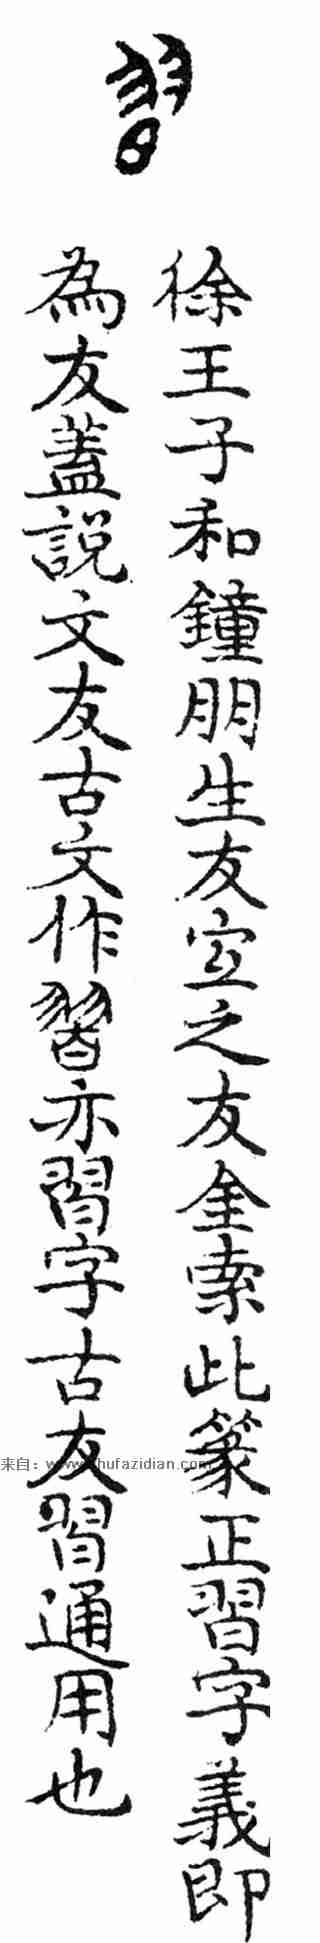 習
徐王子和鐘朋生友宜之友金索此篆正習字義即
為友蓋說文友古文作習亦習字古友習通用也
来自：www.shufazidian.com